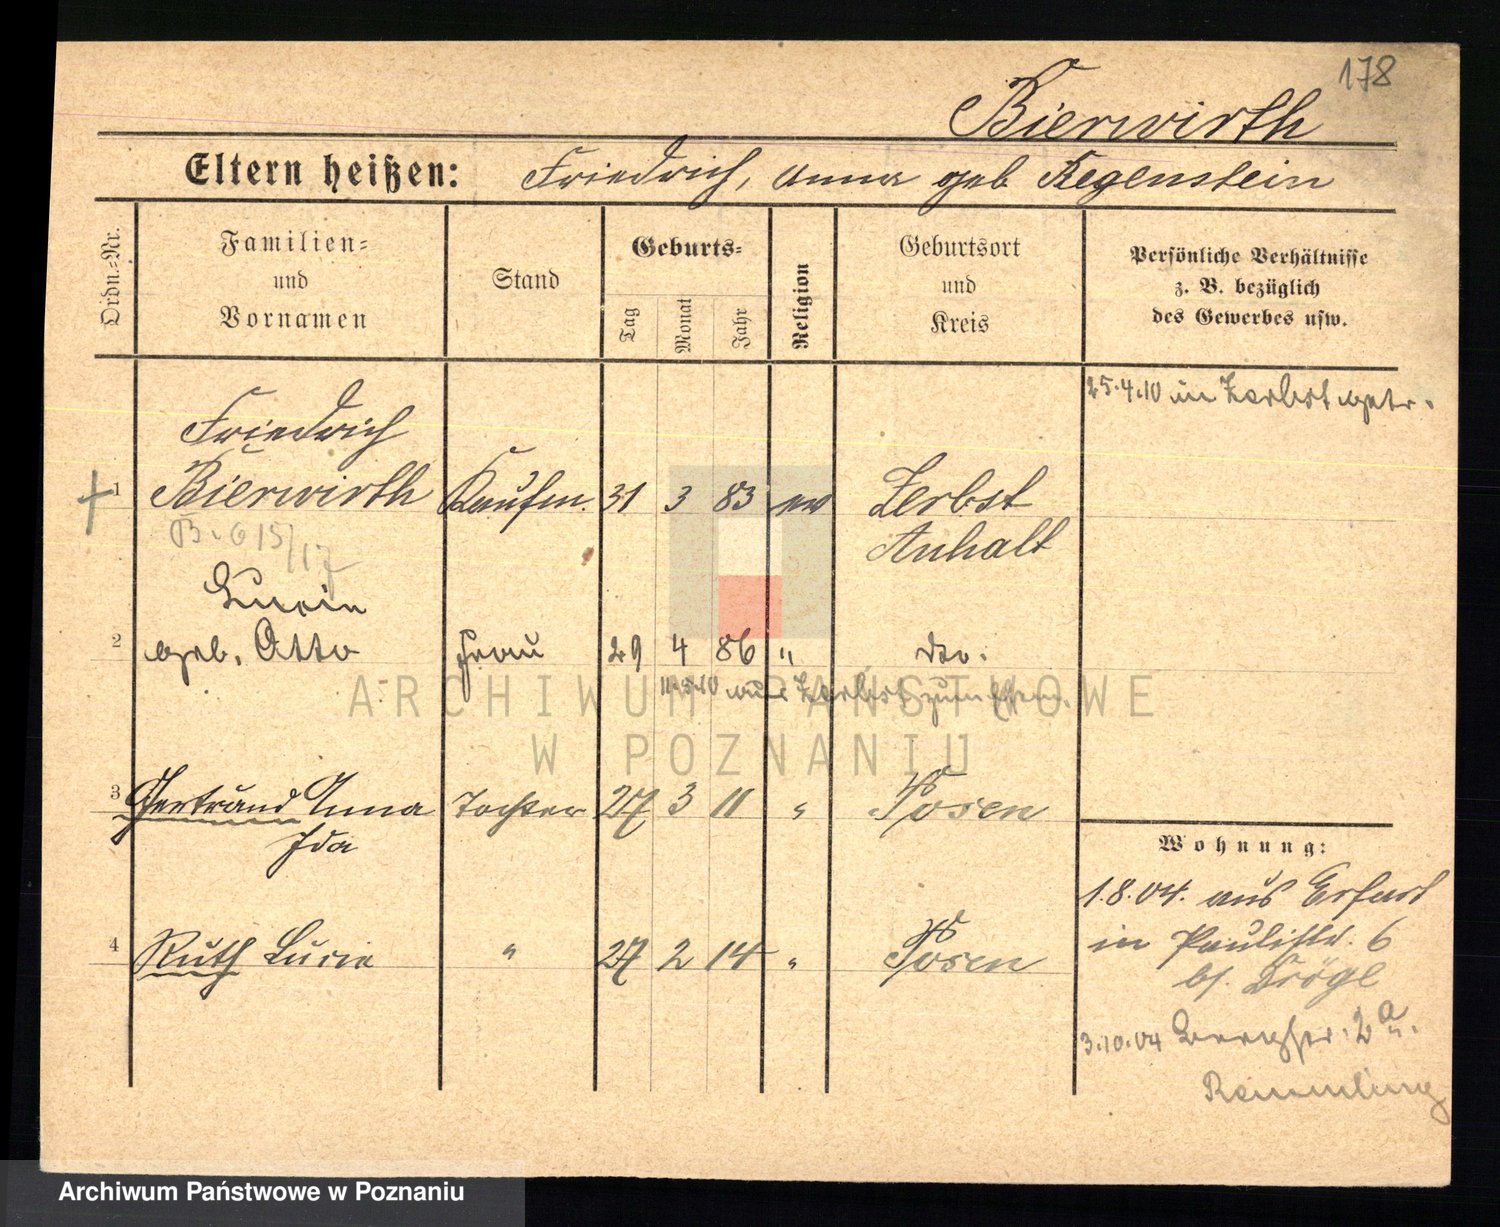 178
Bierwirth
Eltern heißen: Friedrich, Anna geb Regenstein
Ordn.-Nr.
Familien-
und
Vornamen
Stand
Geburts-
Tag
Monat
Jahr
Religion
Geburtsort
und
Kreis
Persönliche Verhältnisse
z. B. bezüglich
des Gewerbes usw.
25.4.10 in Zerbst getr.
Friedrich
1 Bierwirth Kaufm. 31 3 83 ev Zerbst
Anhalt
B. 615/17
Lucie
2 geb. Otto Frau 29 4 86 " do.
11.5.10 aus Zerbst zum
3 Gertraud Anna Tochter 27 3 11 " Posen
Ida
4 Ruth Lucie " 27 2 14 " Posen
Wohnung:
1.8.04. aus Erfurt
in Paulistr. 6
bj. Drögl
3.10.04 2a
Remmling
ARCHIWUM PAŃSTWOWE
W POZNANIU
Archiwum Państwowe w Poznaniu